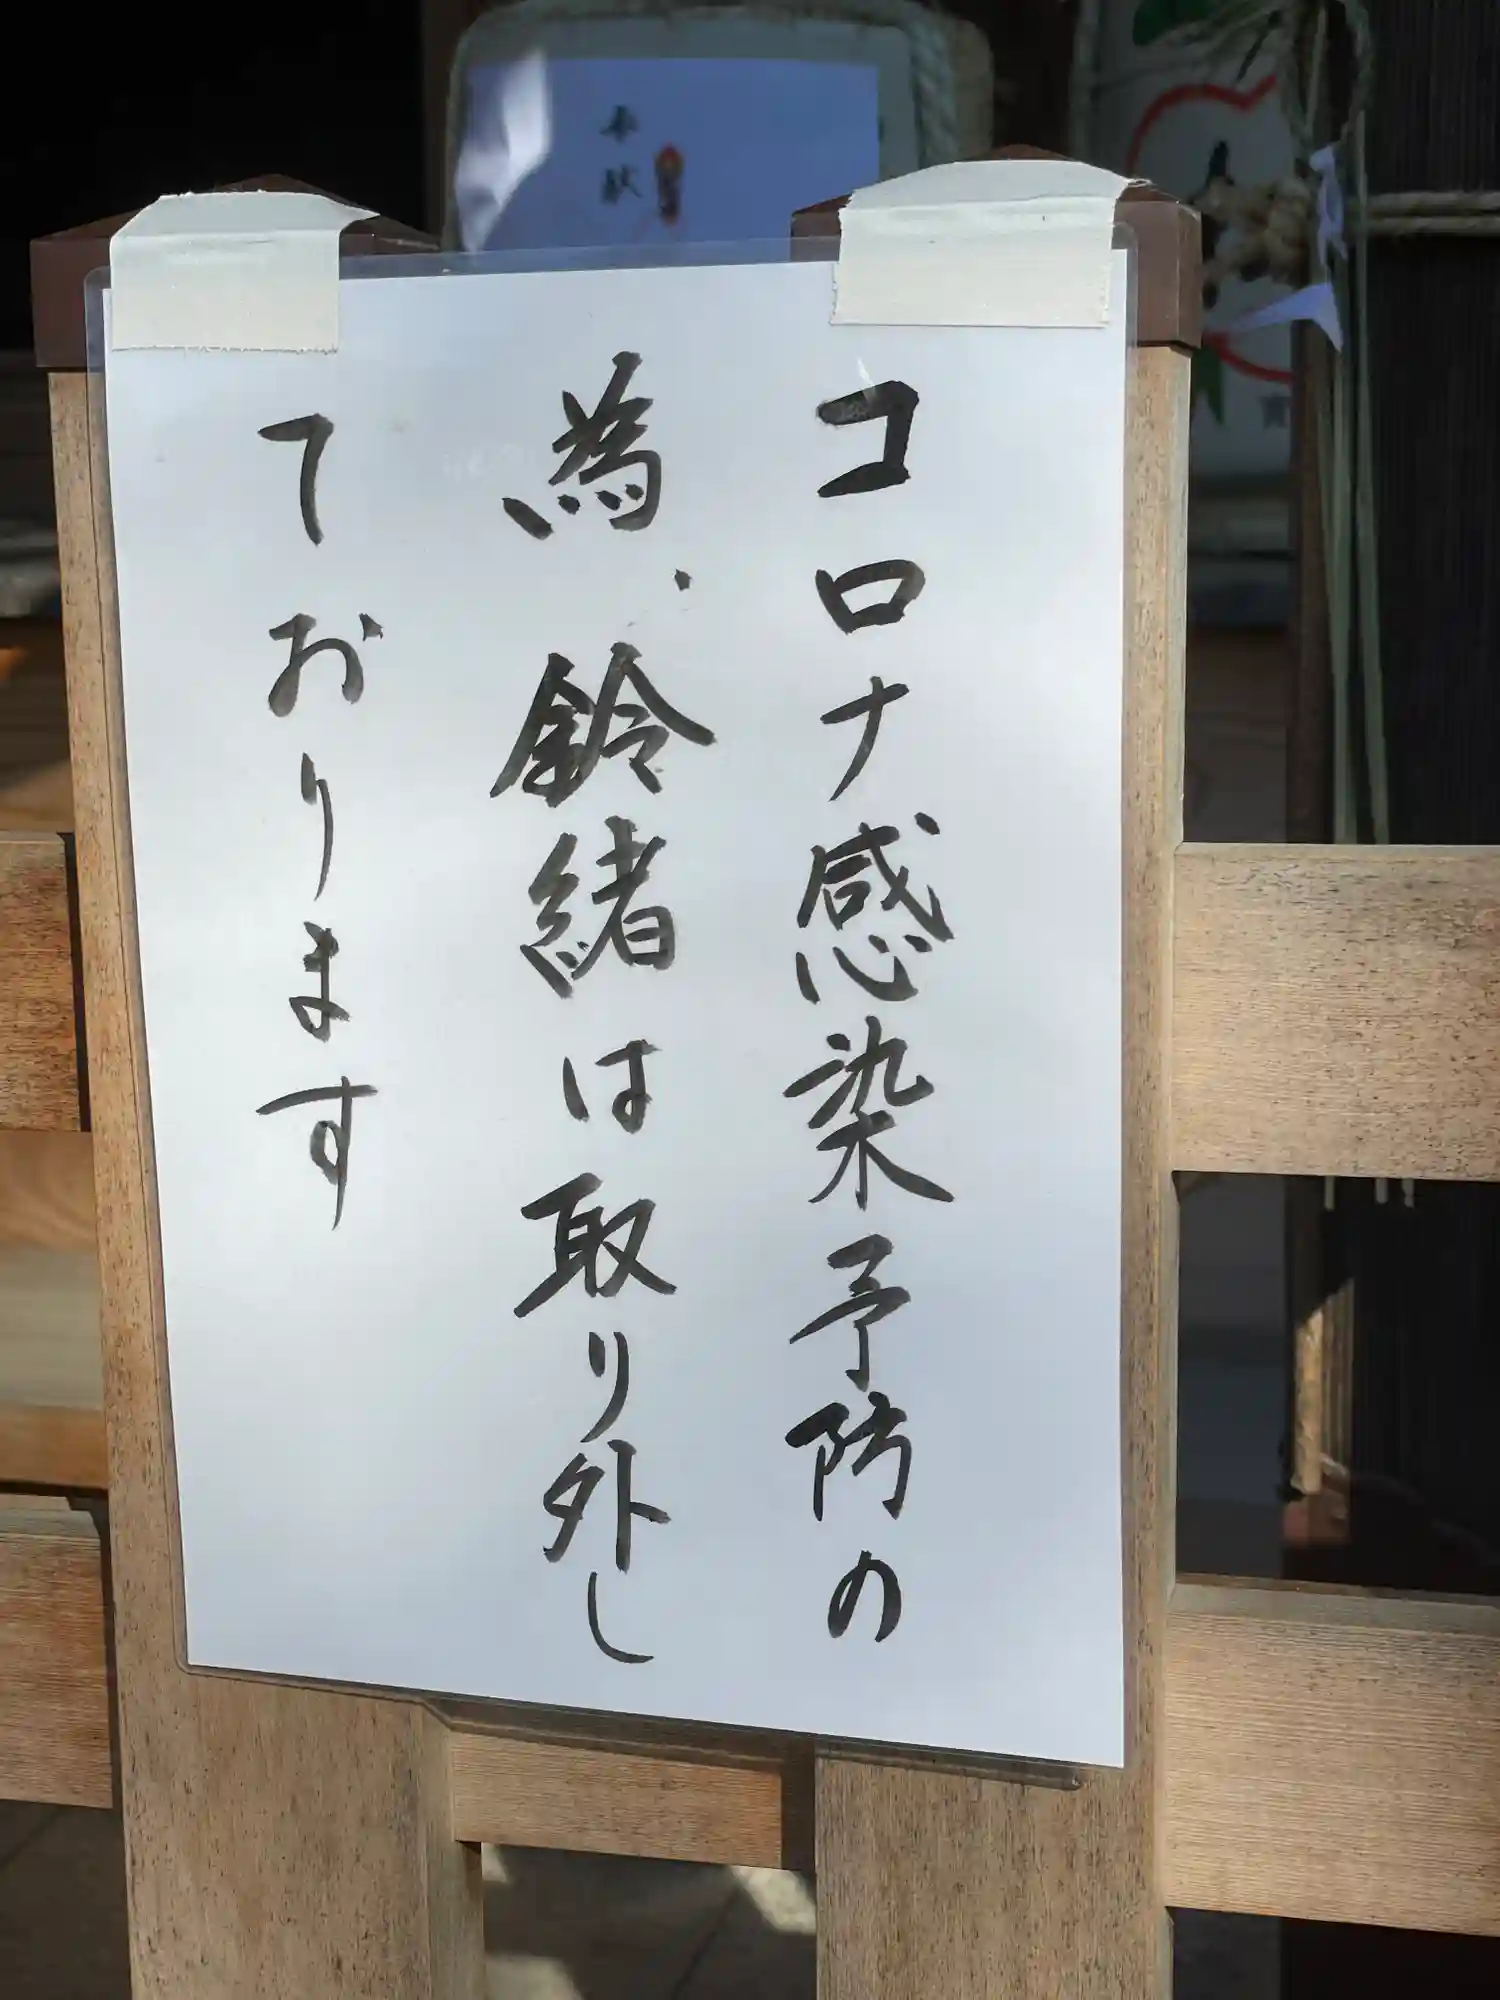 コロナ感染予防の
為、鈴緒は取り外し
ております
奉献